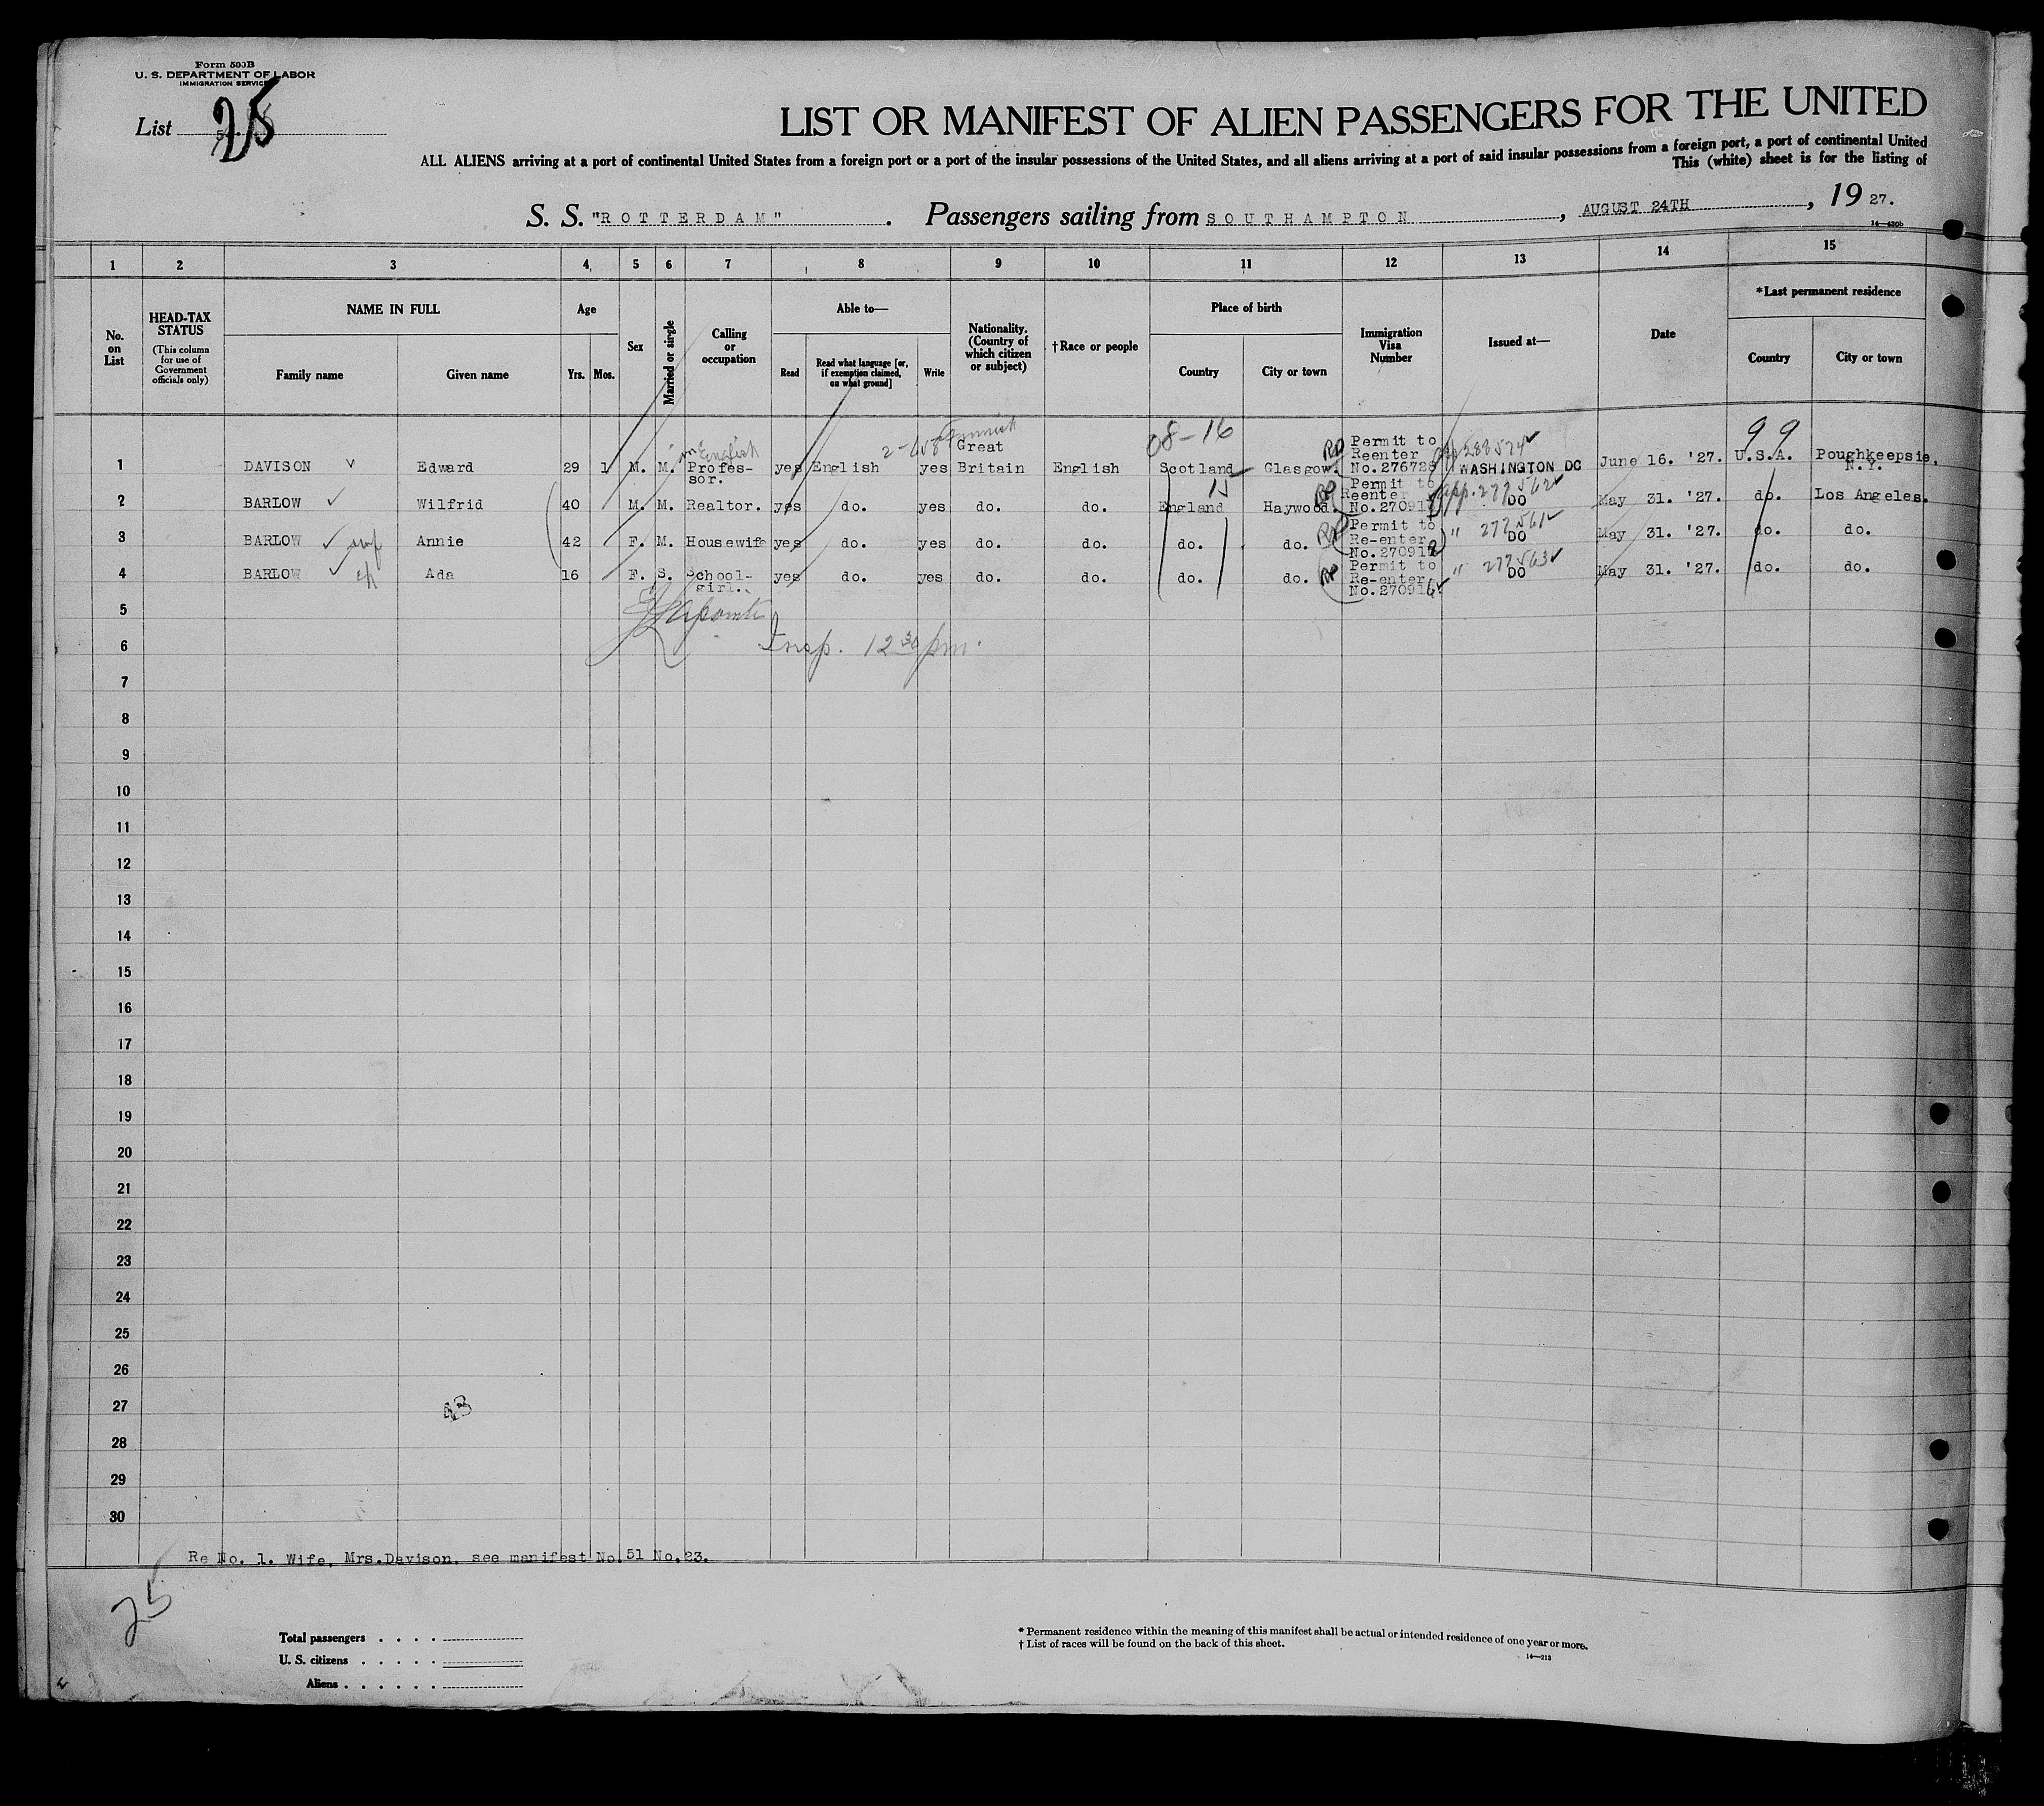 Form 500B
U. S. DEPARTMENT OF LABOR
IMMIGRATION SERVICE
List 25
LIST OR MANIFEST OF ALIEN PASSENGERS FOR THE UNITED
ALL ALIENS arriving at a port of continental United States from a foreign port or a port of the insular possessions of the United States, and all aliens arriving at a port of said insular possessions from a foreign port, a port of continental United
This (white) sheet is for the listing of
S. S. "ROTTERDAM". Passengers sailing from SOUTHAMPTON, AUGUST 24TH, 19 27.
1 2 3 4 5 6 7 8 9 10 11 12 13 14 15
No. on List
HEAD-TAX STATUS
(This column for use of Government officials only)
NAME IN FULL
Family name Given name
Age
Yrs. Mos.
Sex
Married or single
Calling or occupation
Able to—
Read Read what language [or, if exemption claimed, on what ground] Write
Nationality. (Country of which citizen or subject)
†Race or people
Place of birth
Country City or town
Immigration Visa Number
Issued at—
Date
*Last permanent residence
Country City or town
08-16 99
1 DAVISON Edward 29 1 M. M. Profes-sor. English yes English yes Great Britain English Scotland Glasgow. Permit to Reenter No.276728 288574 WASHINGTON DC June 16. '27. U.S.A. Poughkeepsie, N.Y.
15
2 BARLOW Wilfrid 40 M. M. Realtor. yes do. yes do. do. England Haywood. Permit to Reenter App. 277562 DO May 31. '27. do. Los Angeles.
3 BARLOW Annie 42 F. M. Housewife yes do. yes do. do. do. do. Permit to Re-enter " 277561 DO May 31. '27. do. do.
4 BARLOW Ada 16 F. S. School-girl. yes do. yes do. do. do. do. Permit to Re-enter No.270916 " 277563 DO May 31. '27. do. do.
5
6 Insp. 12 30 pm.
7
8
9
10
11
12
13
14
15
16
17
18
19
20
21
22
23
24
25
26
27
28
29
30
Re No. 1. Wife, Mrs.Davison, see manifest No.51 No.23.
25
Total passengers . . . .
U. S. citizens . . . . .
Aliens . . . . . .
* Permanent residence within the meaning of this manifest shall be actual or intended residence of one year or more.
† List of races will be found on the back of this sheet.
14—213